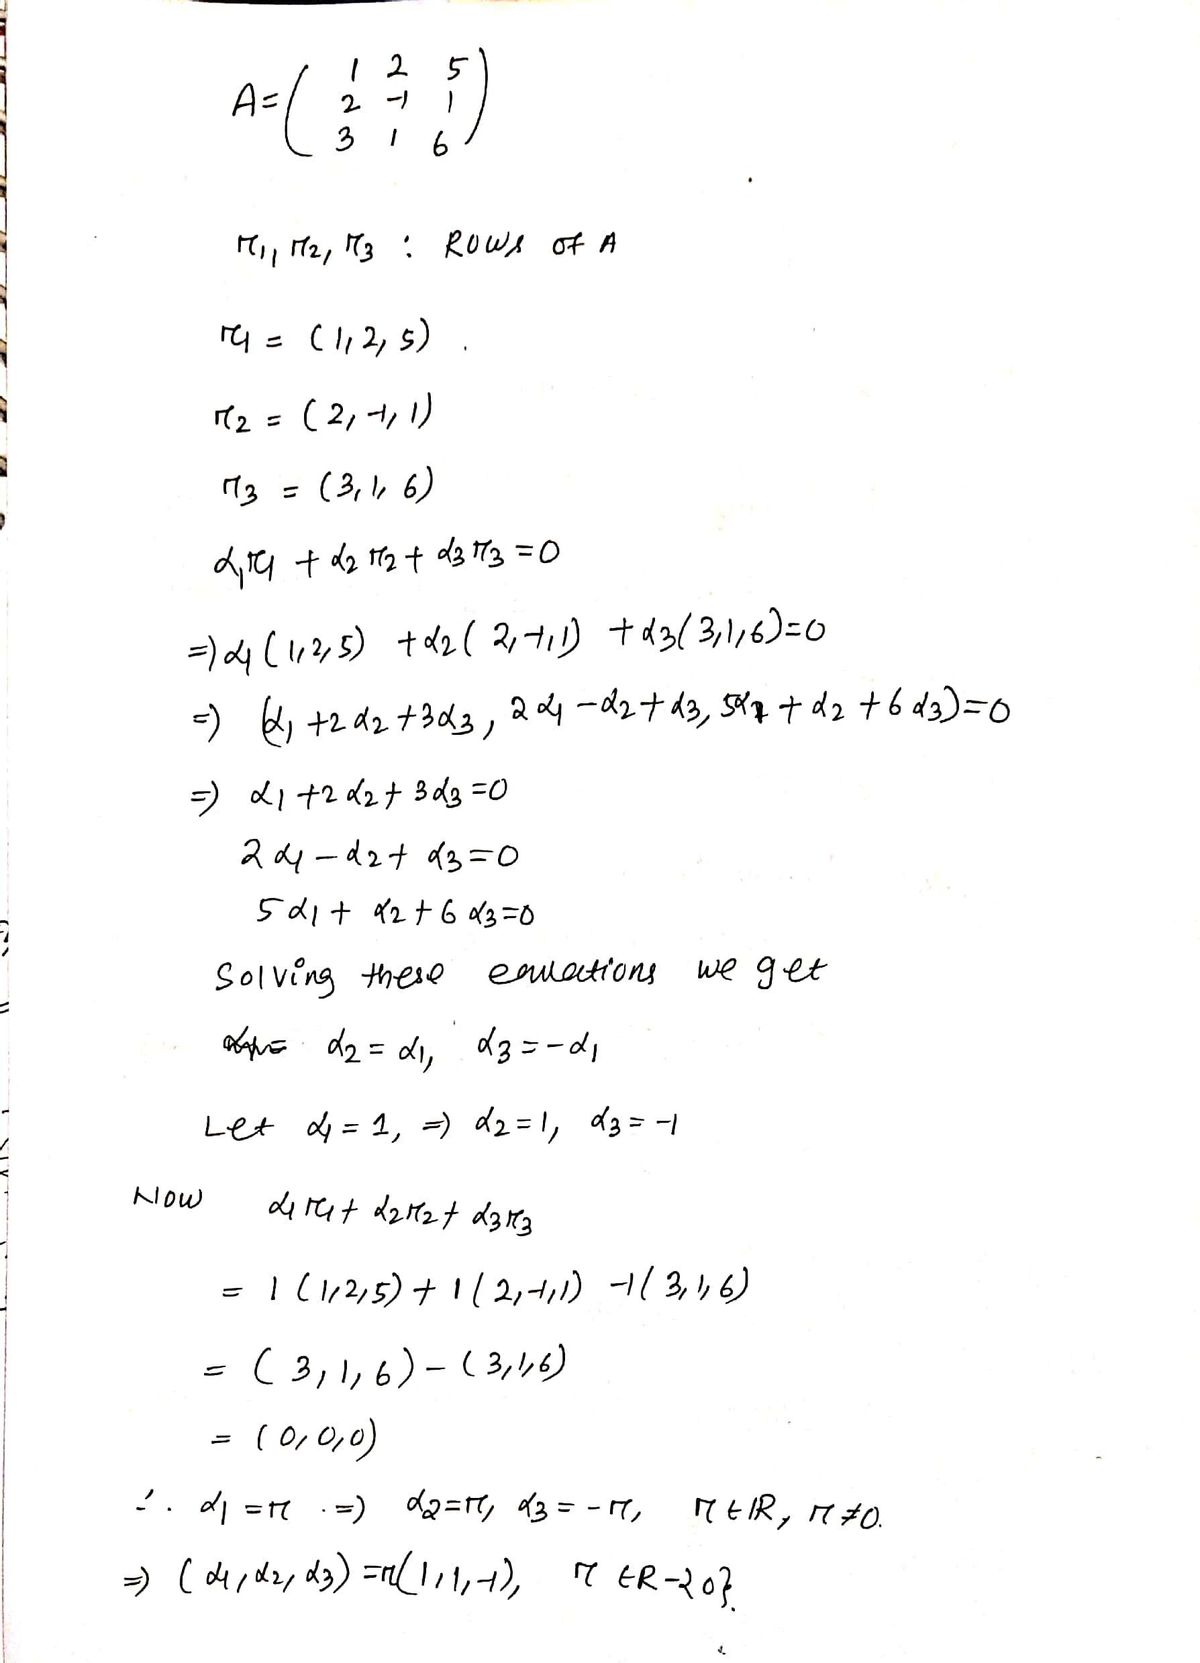 A = ( 1 2 5
2 -1 1
3 1 6 )
r1, r2, r3 : Rows of A
r1 = (1, 2, 5)
r2 = (2, -1, 1)
r3 = (3, 1, 6)
α1r1 + α2r2 + α3r3 = 0
⇒ α1(1,2,5) + α2(2,-1,1) + α3(3,1,6)=0
⇒ (α1 + 2α2 + 3α3, 2α1 - α2 + α3, 5α1 + α2 + 6α3)=0
⇒ α1 + 2α2 + 3α3 = 0
2α1 - α2 + α3 = 0
5α1 + α2 + 6α3 = 0
Solving these equations we get
α2 = α1, α3 = -α1
Let α1 = 1, ⇒ α2 = 1, α3 = -1
Now α1r1 + α2r2 + α3r3
= 1(1,2,5) + 1(2,-1,1) -1(3,1,6)
= (3,1,6) - (3,1,6)
= (0,0,0)
∴ α1 = r ⇒ α2 = r, α3 = -r, r ∈ IR, r ≠ 0.
⇒ (α1, α2, α3) = r(1,1,-1), r ∈ R - {0}.